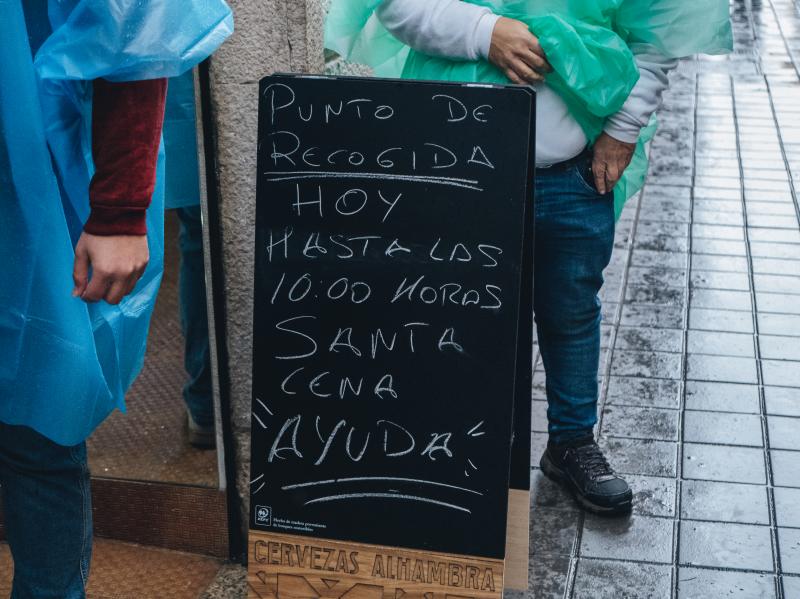 PUNTO DE
RECOGIDA
HOY
HASTA LAS
10:00 HORAS
SANTA
CENA
AYUDA
Hecho de madera proveniente
de bosques sostenibles
CERVEZAS ALHAMBRA